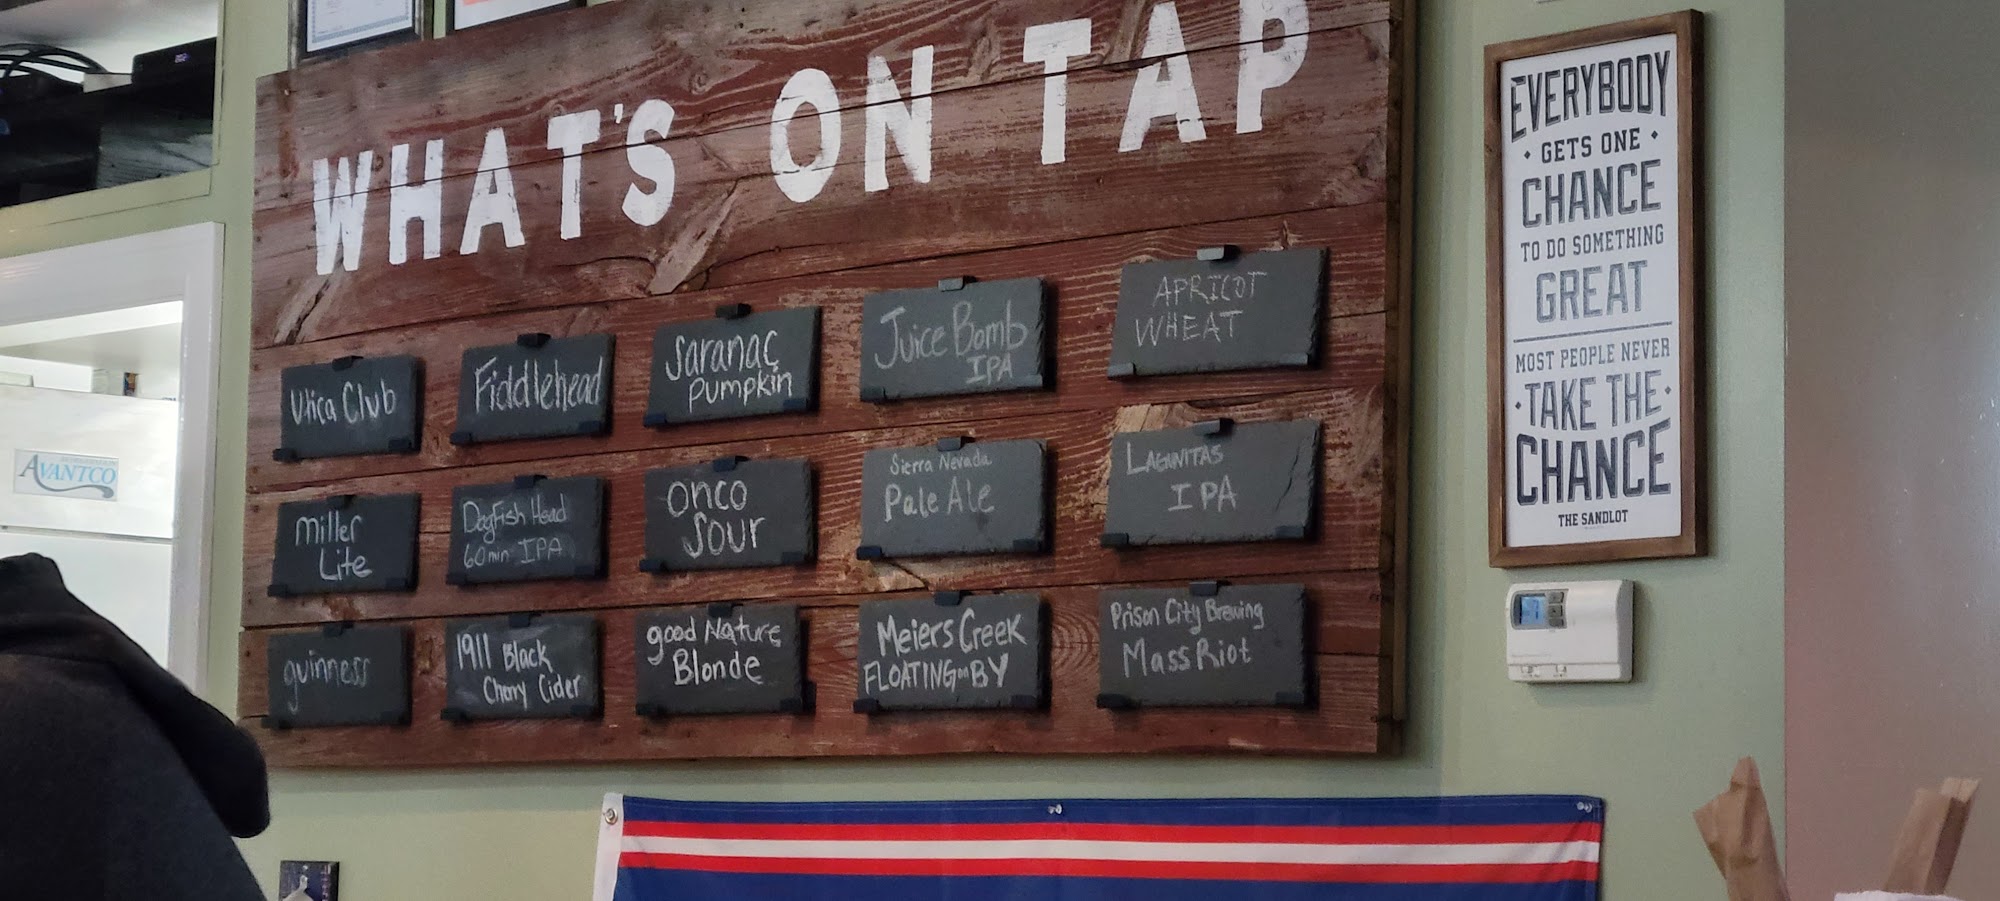 WHAT'S ON TAP
Utica Club
Fiddlehead
Saranac
Pumpkin
Juice Bomb
IPA
APRICOT
WHEAT
Miller
Lite
DogFish Head
60min IPA
Onco
Sour
Sierra Nevada
Pale Ale
LAGUNITAS
IPA
guinness
1911 Black
Cherry Cider
good Nature
Blonde
Meiers Creek
FLOATING on BY
Prison City Brewing
Mass Riot
EVERYBODY
GETS ONE
CHANCE
TO DO SOMETHING
GREAT
MOST PEOPLE NEVER
TAKE THE
CHANCE
THE SANDLOT
AVANTCO